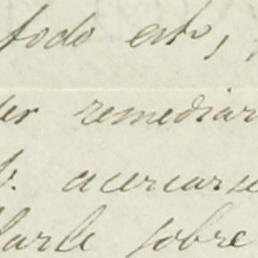 todo esto,
der remediar
V. acercarse
larle sobre